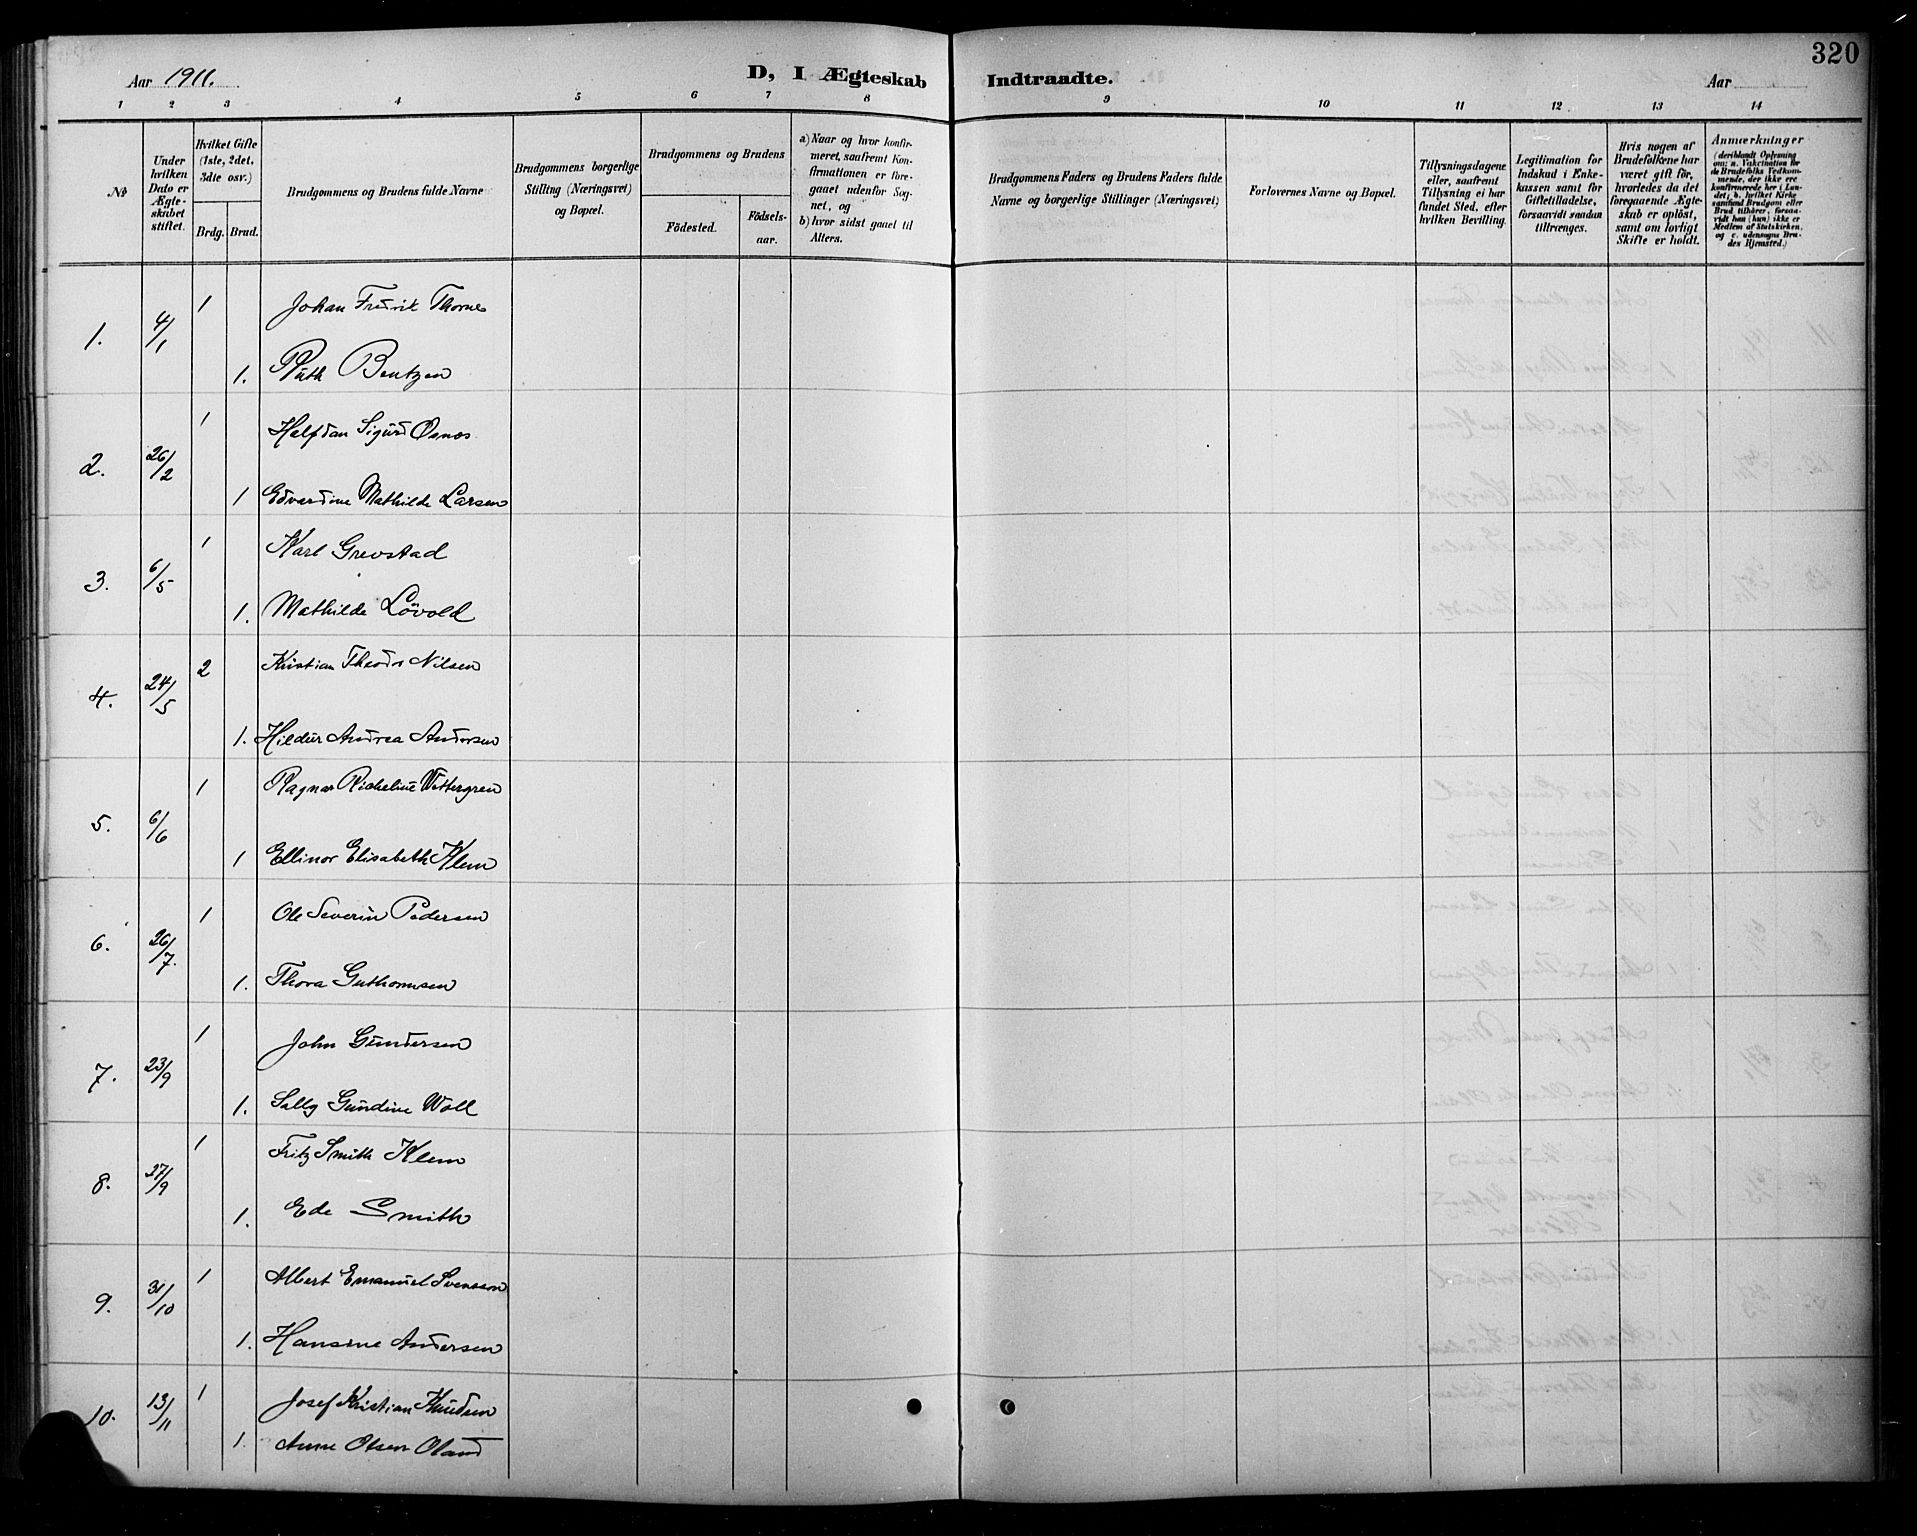 320
Aar 1911.
D, I Ægteskab Indtraadte.
Aar
1 2 3 4 5 6 7 8 9 10 11 12 13 14
№
Under hvilken Dato er Ægteskabet stiftet.
Hvilket Gifte (1ste, 2det, 3die osv.)
Brdg. Brud.
Brudgommens og Brudens fulde Navne
Brudgommens borgerlige Stilling (Næringsvei) og Bopæl.
Brudgommens og Brudens
Födested.
Födselsaar.
a) Naar og hvor konfirmeret, saafremt Konfirmationen er foregaaet udenfor Sognet, og
b) hvor sidst gaaet til Alters.
Brudgommens Faders og Brudens Faders fulde Navne og borgerlige Stillinger (Næringsvei)
Forlovernes Navne og Bopæl.
Tillysningsdagene eller, saafremt Tillysning ei har fundet Sted, efter hvilken Bevilling.
Legitimation for Indskud i Enkekassen samt for Giftetilladelse, forsaavidt saadan tiltrænges.
Hvis nogen af Brudefolkene har været gift før, hvorledes da det foregaaende Ægteskab er opløst, samt om lovligt Skifte er holdt.
Anmærkninger
(deriblandt Oplysning om: a. Vakcination for de Brudefolks Vedkommende, der ikke ere konfirmerede her i Landet; b. hvilket Kirkesamfund Brudgom eller Brud tilhører, forsaavidt han (hun) ikke er Medlem af Statskirken, og c. udensogns Brudes Hjemsted.)
1. 4/1 1 Johan Fredrik Thornes
1. Ruth Bentzen
2. 26/2 1 Halfdan Sigurd Osnes
1 Edvardine Mathilde Larsen
3. 6/5 1 Karl Grevstad
1. Mathilde Lövold
4. 24/5 2 Kristian Theodor Nilsen
1. Hildur Andrea Andersen
5. 6/6 1 Ragnar Richelius Wettergren
1 Ellinor Elisabeth Klem
6. 26/7. 1 Ole Severin Pedersen
1. Thora Guthormsen
7. 23/9 1 John Gundersen
1. Sally Gundine Woll
8. 27/9 1 Fritz Smith Klem
1. Ede Smith
9. 31/10 1 Albert Emanuel Svensson
1. Hansine Andersen
10. 13/11 1 Josef Kristian Knudsen
1. Anne Olsen Oland